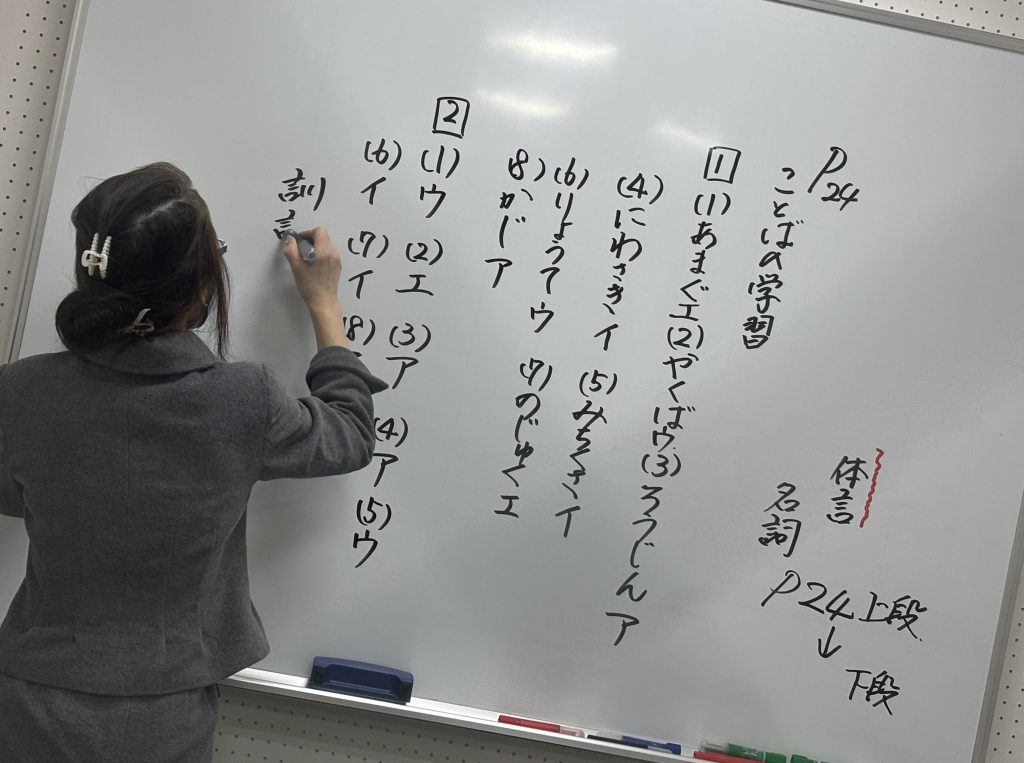 P24
ことばの学習
体言
名詞
P24上段
↓
下段
1
(1)あまぐエ(2)やくばウ(3)ろうじんア
(4)にわさきイ(5)みちくさイ
(6)りょうてウ(7)のじゅくエ
(8)かじア
2
(1)ウ(2)エ(3)ア(4)ア(5)ウ
(6)イ(7)イ(8)
訓
言